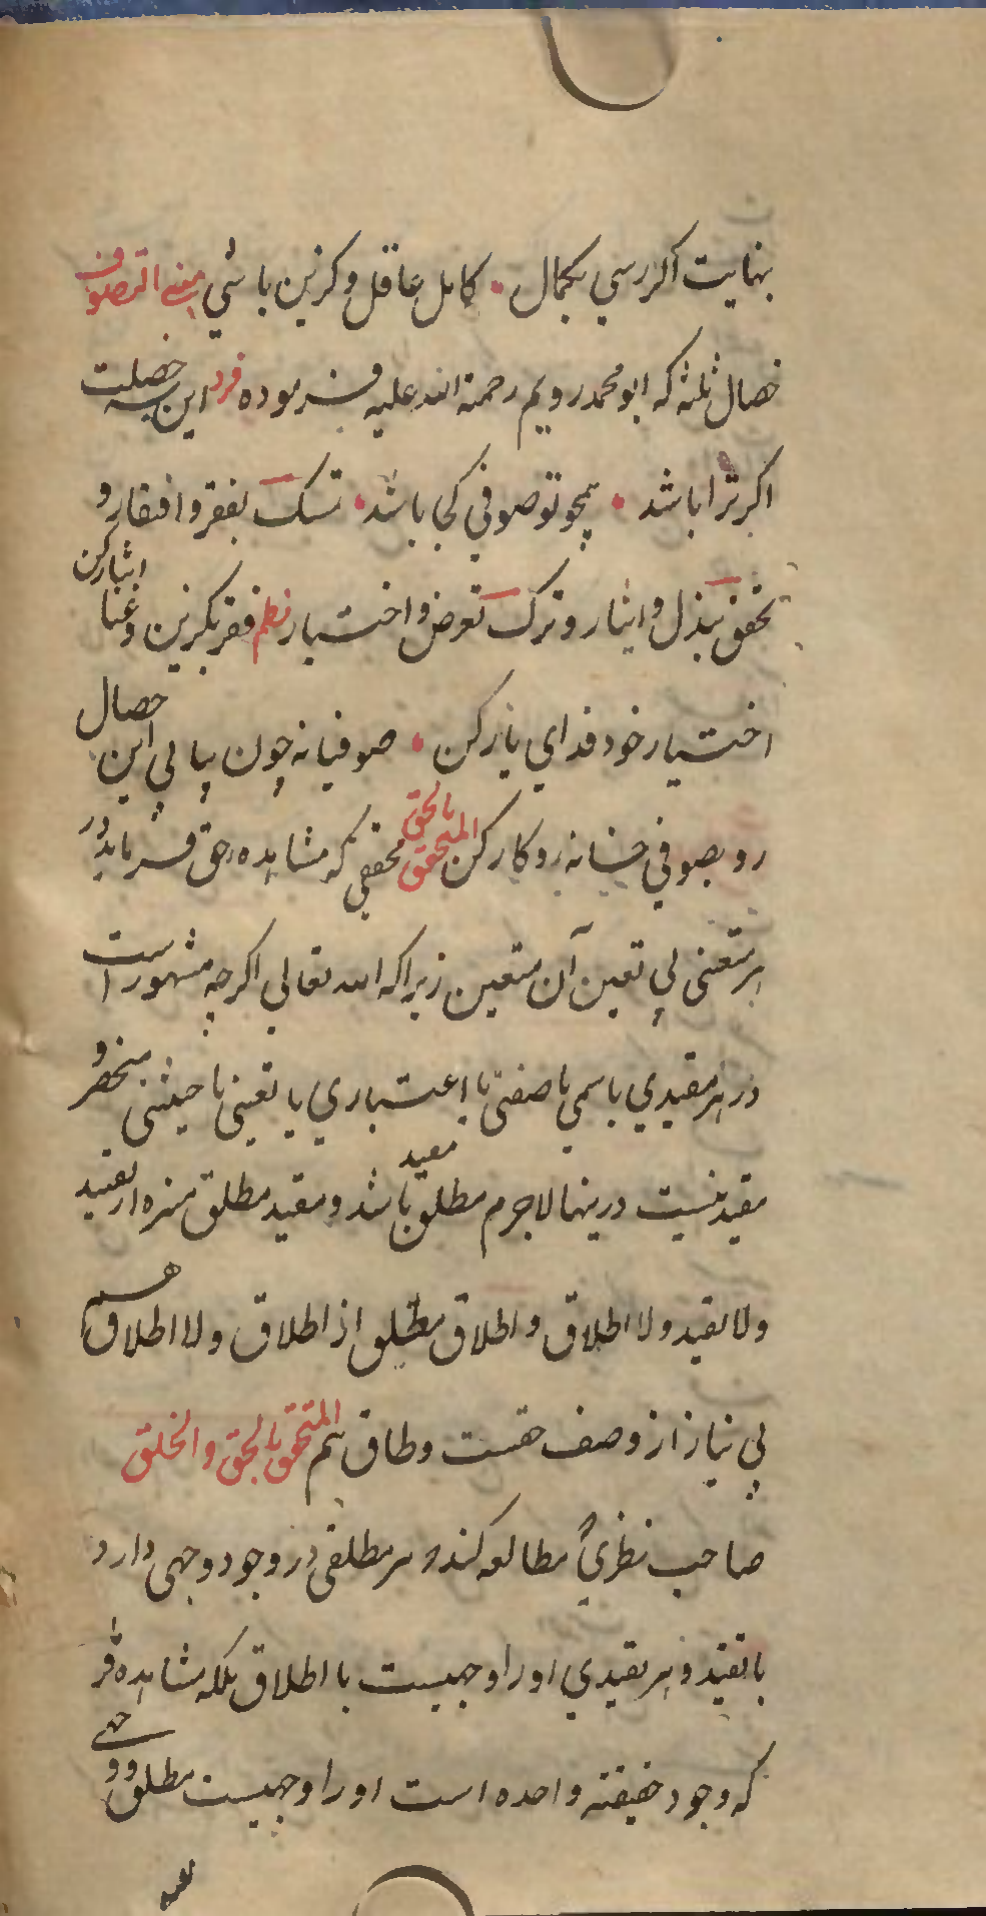 بنهایت اگر رسی بکمال • کامل عاقل و گزین باشی مبنی التصوف
خصال ثلثه که ابو محمد رویم رحمة الله علیه فرموده فرد این سه خصلت
اگر ترا باشد • همچو تو صوفی کجا باشد • تمسک بفقر و افتقار و
تحقق ببذل و ایثار و ترک تعرض و اختیار نظم فقر بگزین و غنا ایثار کن
اختیار خود فدای یار کن • صوفیانه چون بیابی این خصال
رو بصوفی خانه رو کار کن المتحقق بالحق محققی که مشاهده حق فرماید در
هر متعینی بی تعین آن متعین زیرا که الله تعالی اگرچه مشهور است
در هر مقیدی باسمی یا صفتی یا اعتباری یا تعینی یا حیثیتی منحصر و
مقید نیست درینها لاجرم مطلق مقید باشد و مقید مطلق منزه از تقیید
و لا تقید و لا اطلاق و اطلاق مطلق از اطلاق و لا اطلاق هم
بی نیاز از وصف جفتست و طاق هم المتحقق بالحق و الخلق
صاحب نظری مطالعه کند هر مطلقی در وجود وجهی دارد
با تقید و هر تقیدی او را وجهیست با اطلاق بلکه مشاهده فر
که وجود حقیقته واحده است او را وجهیست مطلق و وجهی